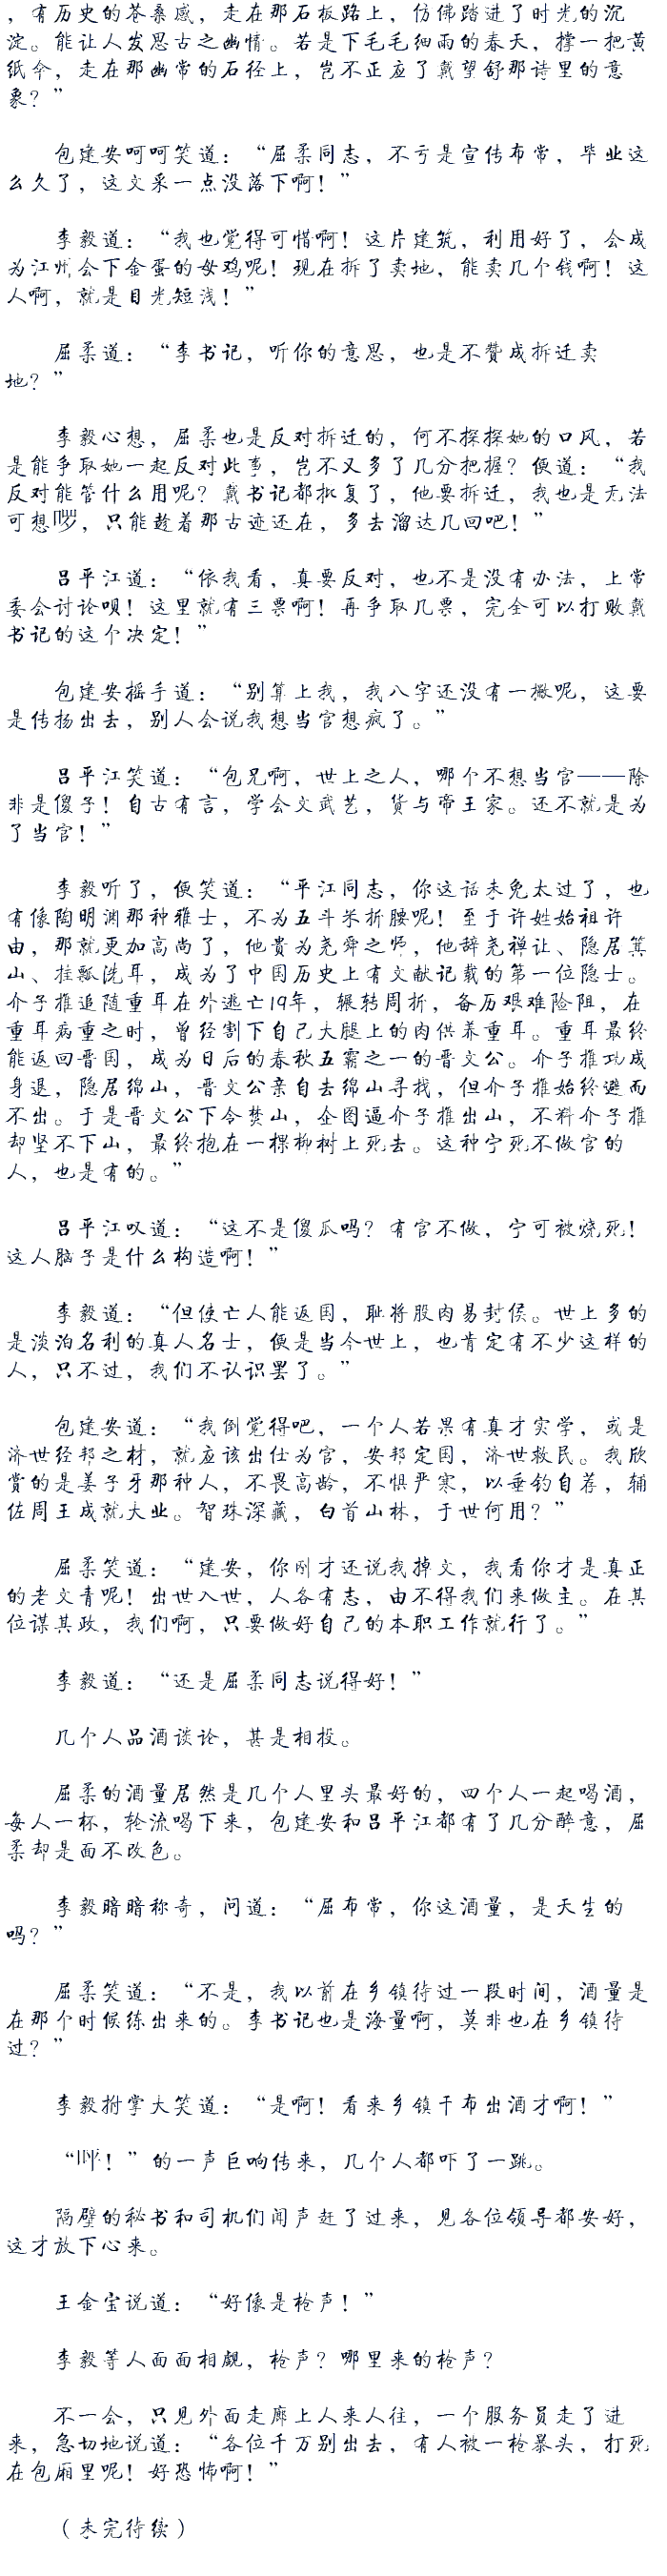 ，有历史的苍桑感，走在那石板路上，仿佛踏进了时光的沉
淀。能让人发思古之幽情。若是下毛毛细雨的春天，撑一把黄
纸伞，走在那幽常的石径上，岂不正应了戴望舒那诗里的意
象？”
包建安呵呵笑道：“屈柔同志，不亏是宣传布常，毕业这
么久了，这文采一点没落下啊！”
李毅道：“我也觉得可惜啊！这片建筑，利用好了，会成
为江州会下金蛋的母鸡呢！现在拆了卖地，能卖几个钱啊！这
人啊，就是目光短浅！”
屈柔道：“李书记，听你的意思，也是不赞成拆迁卖
地？”
李毅心想，屈柔也是反对拆迁的，何不探探她的口风，若
是能争取她一起反对此事，岂不又多了几分把握？便道：“我
反对能管什么用呢？戴书记都批复了，他要拆迁，我也是无法
可想啰，只能趁着那古迹还在，多去溜达几回吧！”
吕平江道：“依我看，真要反对，也不是没有办法，上常
委会讨论呗！这里就有三票啊！再争取几票，完全可以打败戴
书记的这个决定！”
包建安摇手道：“别算上我，我八字还没有一撇呢，这要
是传扬出去，别人会说我想当官想疯了。”
吕平江笑道：“包兄啊，世上之人，哪个不想当官——除
非是傻子！自古有言，学会文武艺，货与帝王家。还不就是为
了当官！”
李毅听了，便笑道：“平江同志，你这话未免太过了，也
有像陶明渊那种雅士，不为五斗米折腰呢！至于许姓始祖许
由，那就更加高尚了，他贵为尧舜之师，他辞尧禅让、隐居箕
山、挂瓢洗耳，成为了中国历史上有文献记载的第一位隐士。
介子推追随重耳在外逃亡19年，辗转周折，备历艰难险阻，在
重耳病重之时，曾经割下自己大腿上的肉供养重耳。重耳最终
能返回晋国，成为日后的春秋五霸之一的晋文公。介子推功成
身退，隐居绵山，晋文公亲自去绵山寻找，但介子推始终避而
不出。于是晋文公下令焚山，企图逼介子推出山，不料介子推
却坚不下山，最终抱在一棵柳树上死去。这种宁死不做官的
人，也是有的。”
吕平江叹道：“这不是傻瓜吗？有官不做，宁可被烧死！
这人脑子是什么构造啊！”
李毅道：“但使亡人能返国，耻将股肉易封侯。世上多的
是淡泊名利的真人名士，便是当今世上，也肯定有不少这样的
人，只不过，我们不认识罢了。”
包建安道：“我倒觉得吧，一个人若果有真才实学，或是
济世经邦之材，就应该出仕为官，安邦定国，济世救民。我欣
赏的是姜子牙那种人，不畏高龄，不惧严寒，以垂钓自荐，辅
佐周王成就大业。智珠深藏，白首山林，于世何用？”
屈柔笑道：“建安，你刚才还说我掉文，我看你才是真正
的老文青呢！出世入世，人各有志，由不得我们来做主。在其
位谋其政，我们啊，只要做好自己的本职工作就行了。”
李毅道：“还是屈柔同志说得好！”
几个人品酒谈论，甚是相投。
屈柔的酒量居然是几个人里头最好的，四个人一起喝酒，
每人一杯，轮流喝下来，包建安和吕平江都有了几分醉意，屈
柔却是面不改色。
李毅暗暗称奇，问道：“屈布常，你这酒量，是天生的
吗？”
屈柔笑道：“不是，我以前在乡镇待过一段时间，酒量是
在那个时候练出来的。李书记也是海量啊，莫非也在乡镇待
过？”
李毅拊掌大笑道：“是啊！看来乡镇干布出酒才啊！”
“呯！”的一声巨响传来，几个人都吓了一跳。
隔壁的秘书和司机们闻声赶了过来，见各位领导都安好，
这才放下心来。
王金宝说道：“好像是枪声！”
李毅等人面面相觑，枪声？哪里来的枪声？
不一会，只见外面走廊上人来人往，一个服务员走了进
来，急切地说道：“各位千万别出去，有人被一枪暴头，打死
在包厢里呢！好恐怖啊！”
（未完待续）